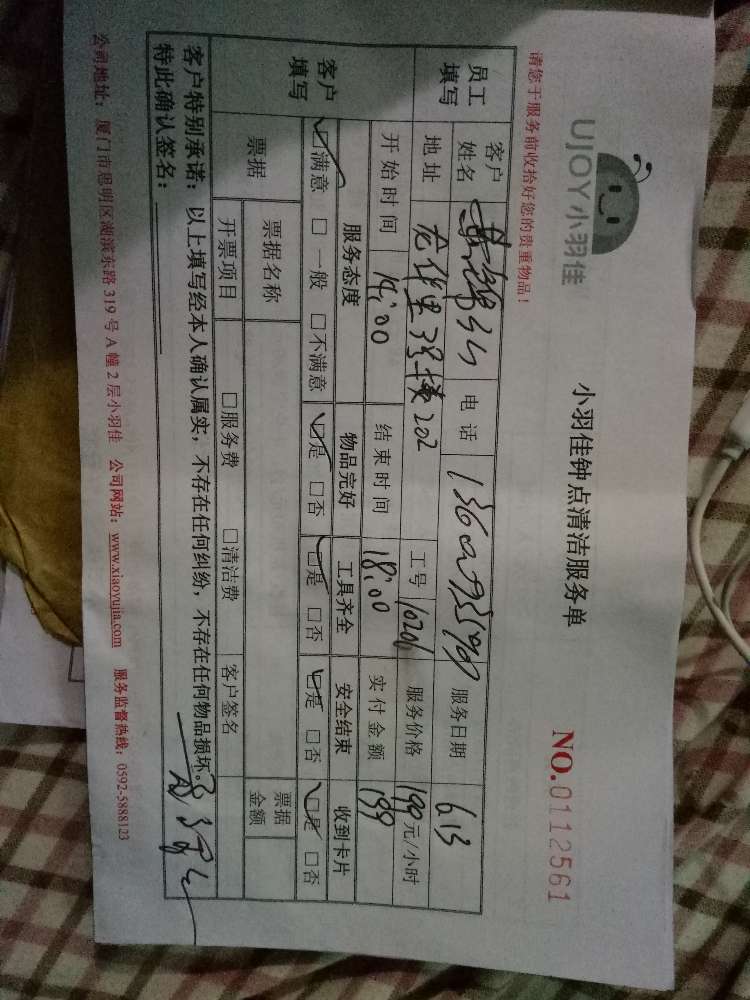 UJOY小羽佳
小羽佳钟点清洁服务单
NO.0112561
请您于服务前收拾好您的贵重物品！
员工填写 客户姓名 电话 服务日期 6.13
地址 龙华里3号楼202 工号 10201 服务价格 199元/小时
开始时间 14:00 结束时间 18:00 实付金额 199
客户填写 服务态度 物品完好 工具齐全 安全结束 收到卡片
□满意 □一般 □不满意 □是 □否 □是 □否 □是 □否 □是 □否
票据 票据名称 票据金额
开票项目 □服务费 □清洁费 客户签名
客户特别承诺：以上填写经本人确认属实，不存在任何纠纷，不存在任何物品损坏。
特此确认签名：
公司地址：厦门市思明区湖滨东路319号A幢2层小羽佳 公司网站：www.xiaoyujia.com 服务监督热线：0592-5888123